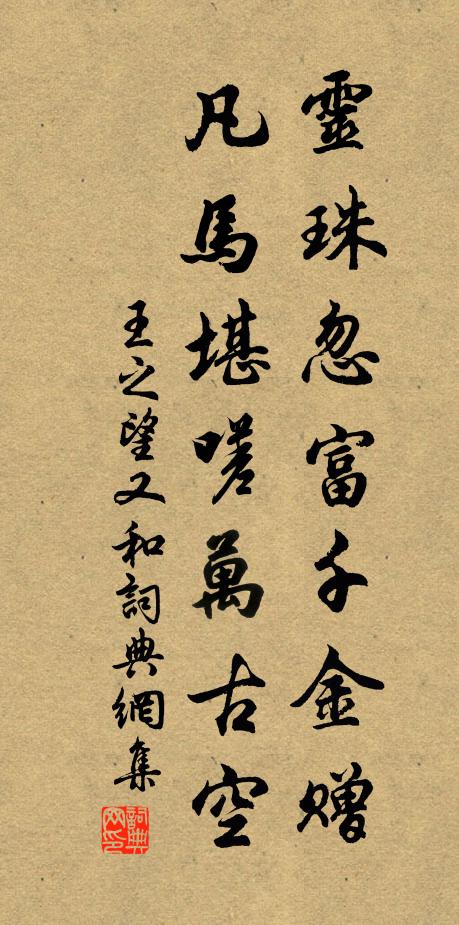 靈珠忽富千金贈
凡馬堪嗟萬古空
王之望又和詞典網集
詞典網印